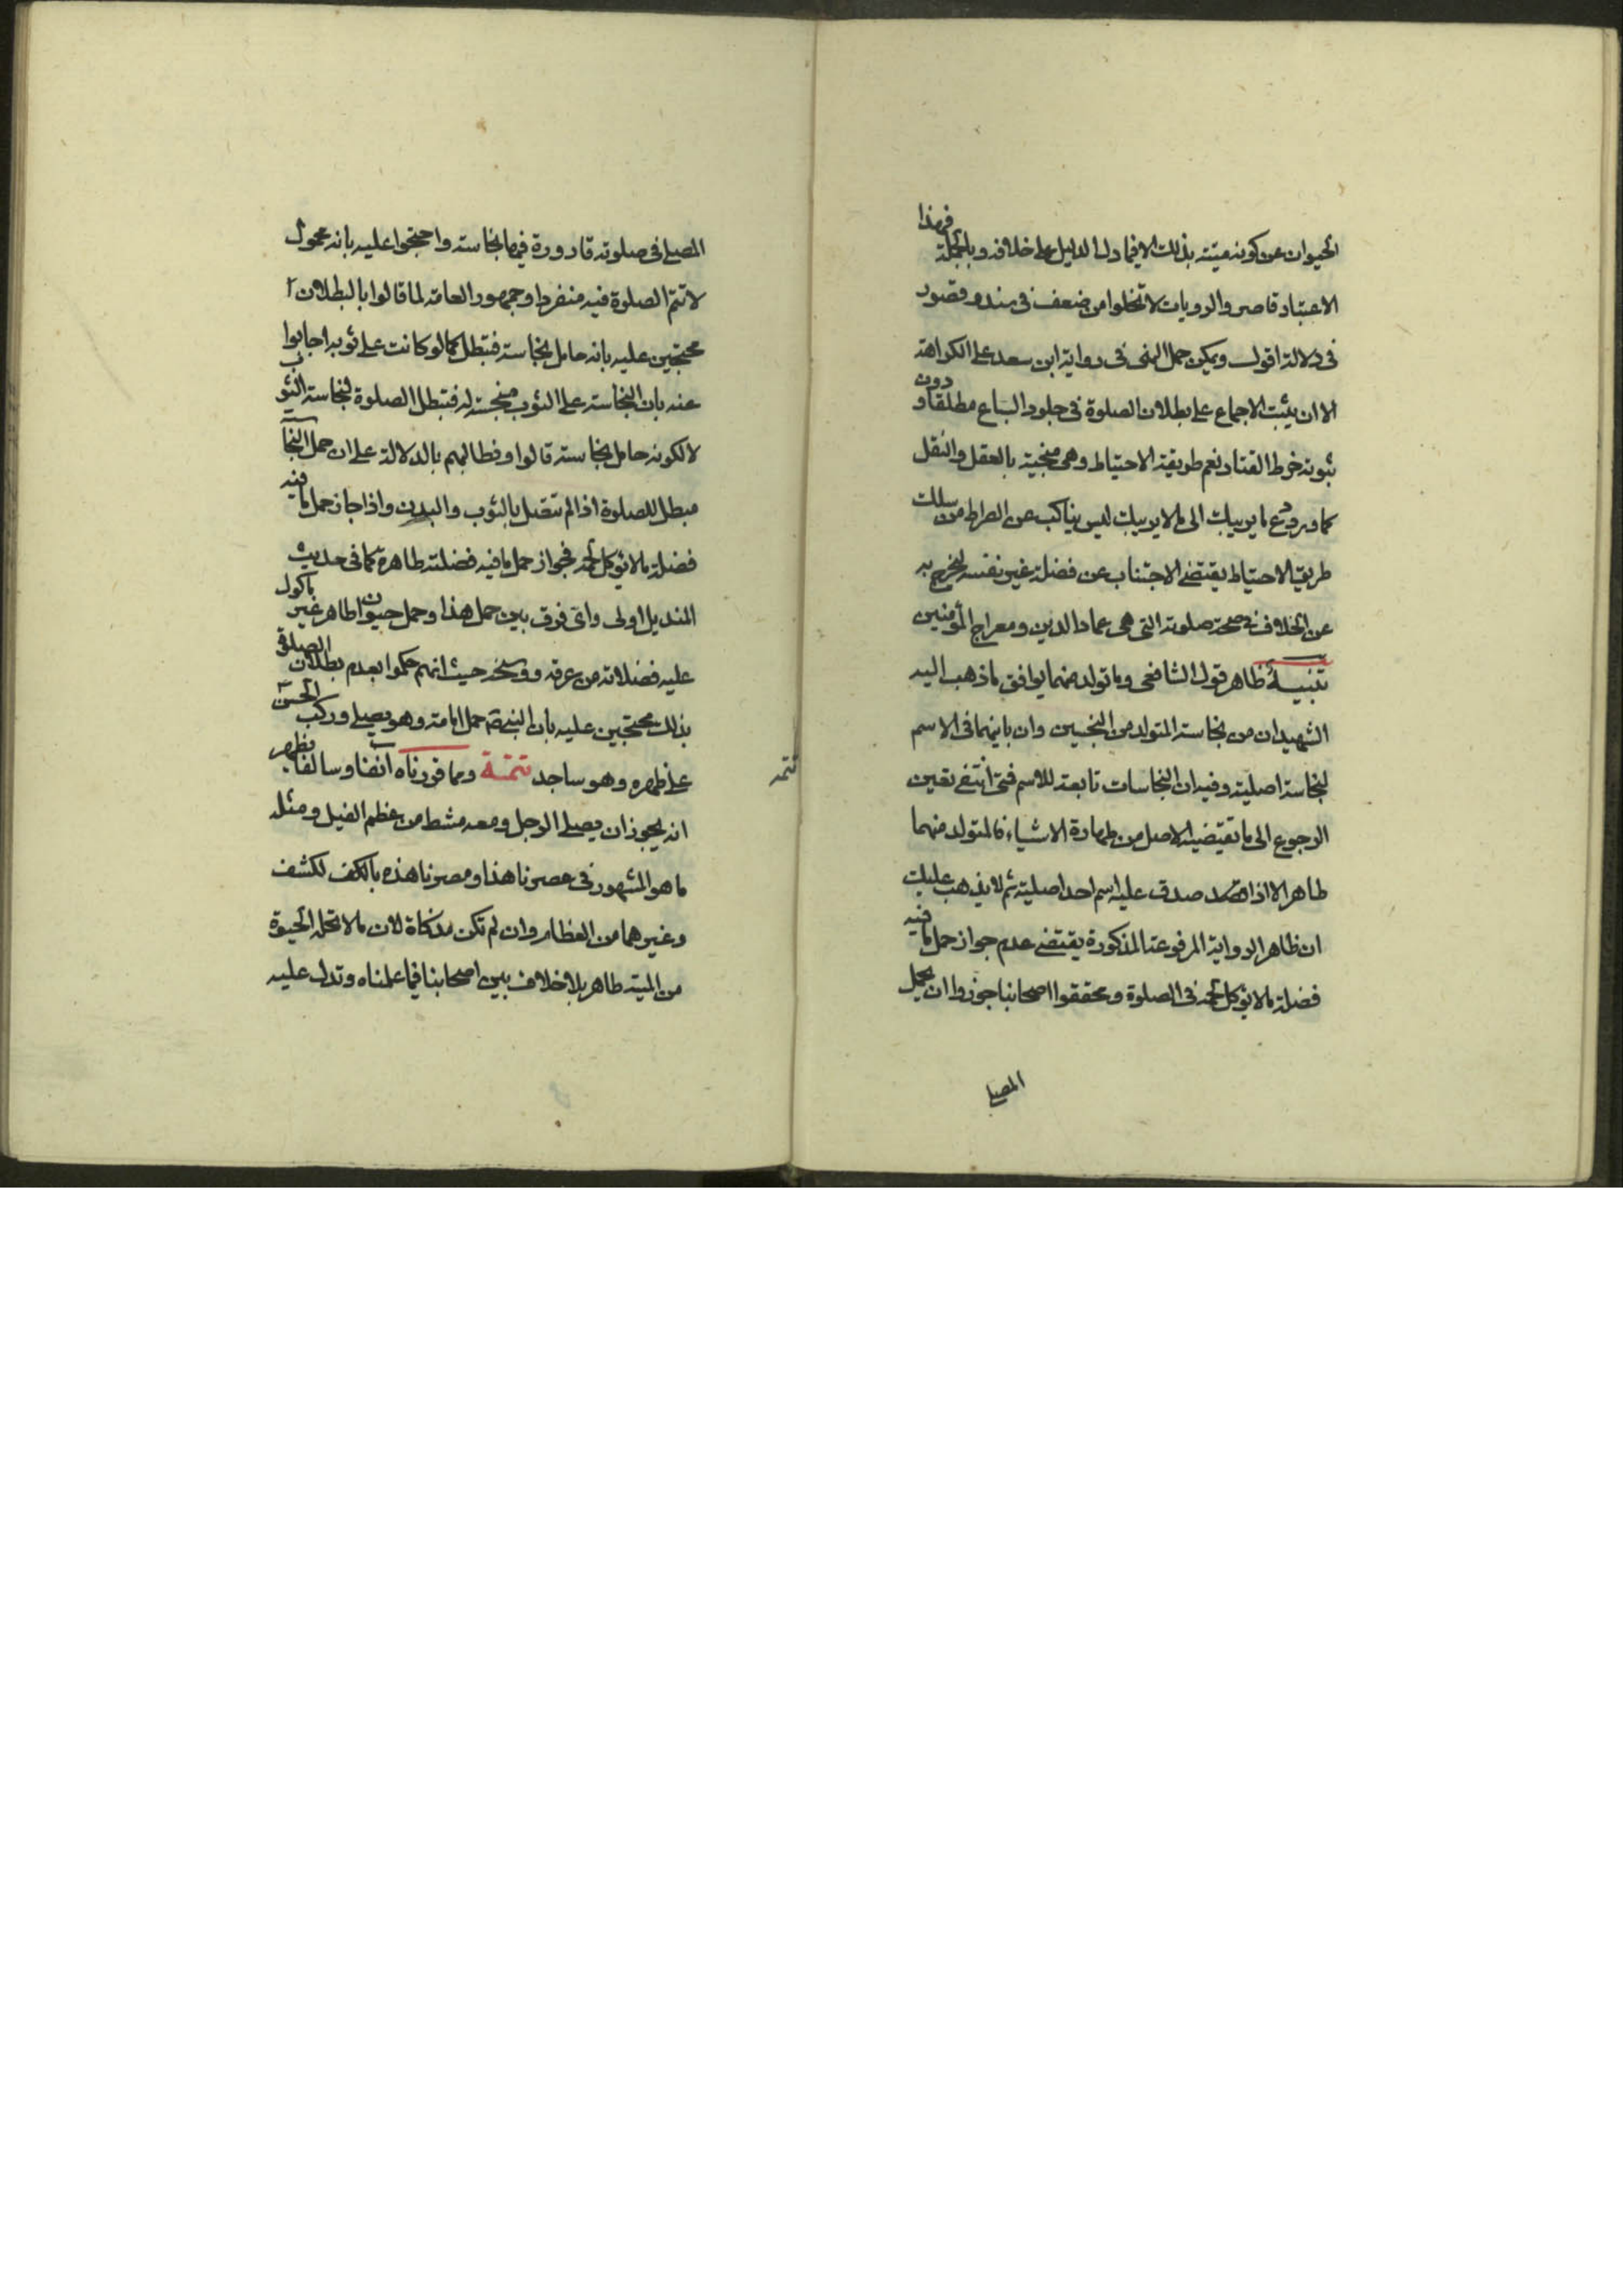 الحيوان عن كونه ميتته بذلك الا فيما دل الدليل على خلافه وبالجملة فهذا
الاعتبار قاصر والرويات لا تخلوا من ضعف في سند وقصور
في دلالة اقول ويمكن حمل النهى في رواية ابن سعد على الكراهة
الا ان يثبت الاجماع على بطلان الصلوة في جلود السباع مطلقا و دون
ثبوته خرط القتاد نعم طريقة الاحتياط وهى منجية بالعقل والنقل
كما ورد دع ما يريبك الى ما لا يريبك ليس بناكب عن الصراط من سلك
طريق الاحتياط يقتضى الاجتناب عن فضلة غير نفسه ليخرج به
عن الخلاف في صحة صلوته التى هى عماد الدين ومعراج المؤمنين
تنبيه ظاهر قول الشافعى وما تولد منهما يوافق ما ذهب اليه
الشهيدان من نجاسة المتولد من النجسين وان باينهما في الاسم
لنجاسة اصليه وفيه ان النجاسات تابعة للاسم فمتى انتفى تعين
الرجوع الى ما تقتضيه الاصل من طهارة الاشياء فالمتولد منهما
طاهر الا اذا صدق عليه اسم احد اصليه ثم لا يذهب عليك
ان ظاهر الرواية المرفوعة المذكورة يقتضى عدم جواز حمل ما فيه
فضلة ما لا يؤكل لحمه في الصلوة ومحققوا اصحابنا جوزوا ان يحمل
المصلى
تتمه
المصلى في صلوته قارورة فيها نجاسته واحتجوا عليه بانه محمول
لا تتم الصلوة فيه منفردا وجمهور العامة لما قالوا بالبطلان
محتجين عليه بانه حامل نجاسة فتبطل كما لو كانت على ثوبه اجابوا
عنه بان النجاسة على الثوب منجسته له فتبطل الصلوة لنجاسة الثوب
لا لكونه حامل نجاسة قالوا ونطالبهم بالدلالة على ان حمل النجاسة
مبطل للصلوة اذا لم تتصل بالثوب والبدن واذا جاز حمل ما فيه
فضلة ما لا يؤكل لحمه فجواز حمل ما فيه فضلته طاهرة كما في حديث
المنديل اولى واى فرق بين حمل هذا وحمل حيوان طاهر غير ماكول
عليه فضلاته من عرقه ووسخه حيث انهم حكموا بعدم بطلان الصلوة
بذلك محتجين عليه بان النبي ص حمل امامة وهو يصلى وركب الحسن
على ظهره وهو ساجد تتمة ومما قررناه آنفا وسالفا ظهر
انه يجوز ان يصلى الرجل ومعه مشط من عظم الفيل ومثله
ما هو المشهور في عصرنا هذا ومصرنا هذه بالكف لكشف
وغيرهما من العظام وان لم تكن مذكاة لان ما لا تحله الحيوة
من الميتة طاهر بلا خلاف بين اصحابنا فيما علمناه وتدل عليه